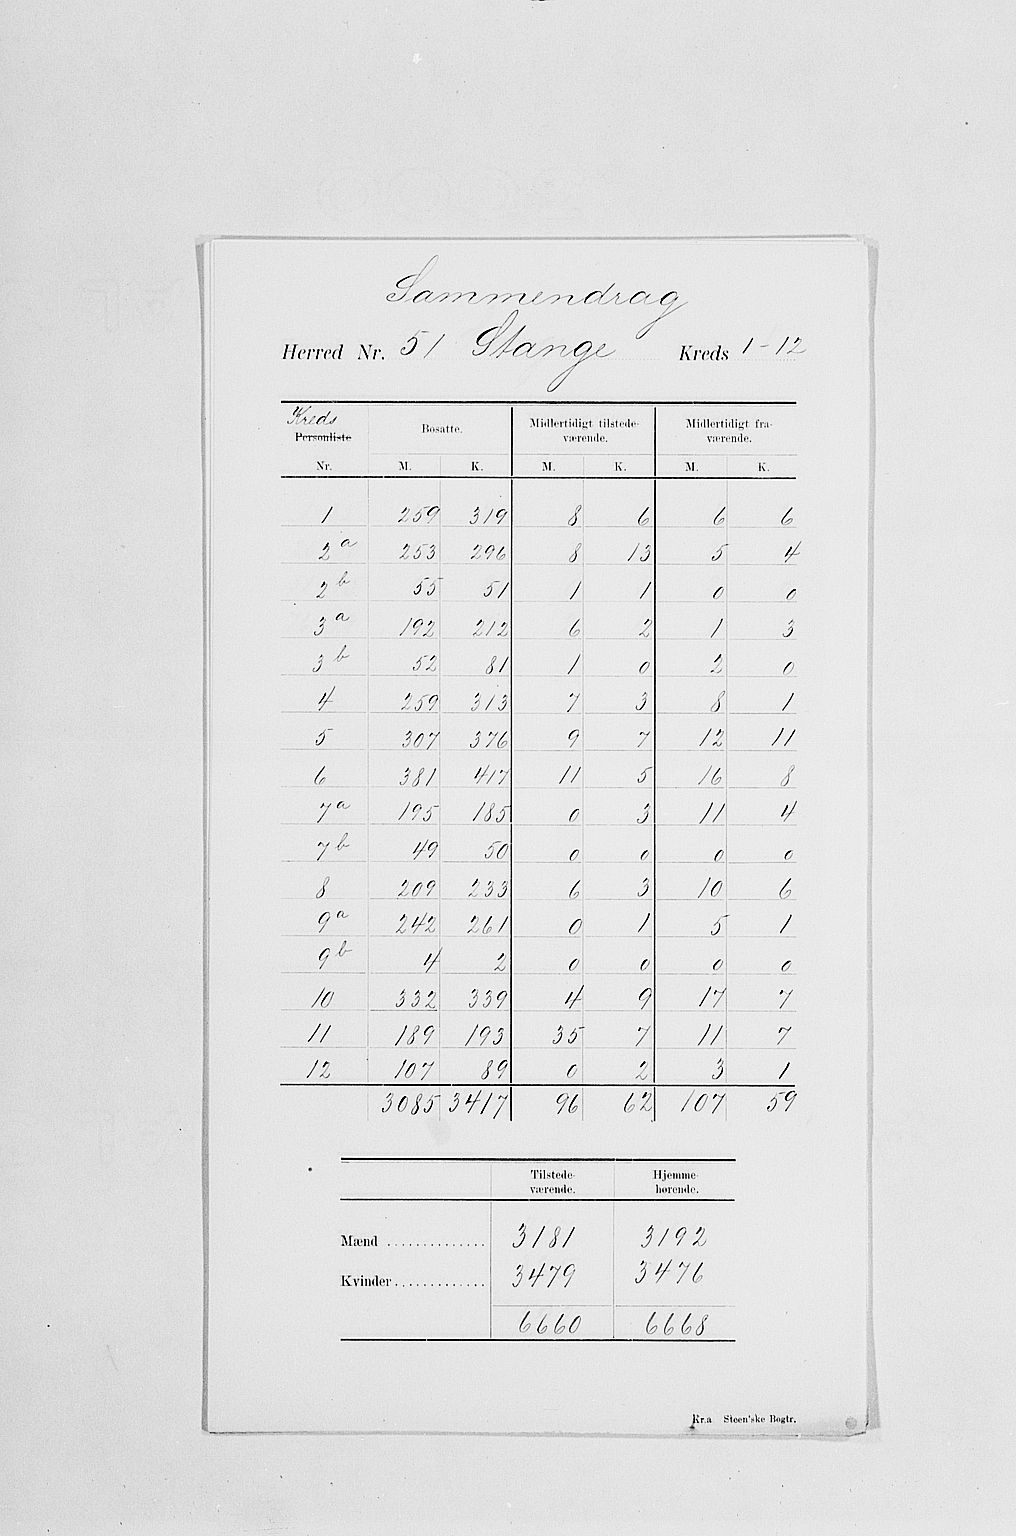 Sammendrag
Herred Nr. 51 Stange Kreds 1-12
Kreds
Personliste Bosatte. Midlertidigt tilstede- Midlertidigt fra-
værende. værende.
Nr. M. K. M. K. M. K.
1 259 319 8 6 6 6
2a 253 296 8 13 5 4
2b 55 51 1 1 0 0
3a 192 212 6 2 1 3
3b 52 81 1 0 2 0
4 259 313 7 3 8 1
5 307 376 9 7 12 11
6 381 417 11 5 16 8
7a 195 185 0 3 11 4
7b 49 50 0 0 0 0
8 209 233 6 3 10 6
9a 242 261 0 1 5 1
9b 4 2 0 0 0 0
10 332 339 4 9 17 7
11 189 193 35 7 11 7
12 107 89 0 2 3 1
3085 3417 96 62 107 59
Tilstede- Hjemme-
værende. hørende.
Mænd .............. 3181 3192
Kvinder............. 3479 3476
6660 6668
Kr.a Steen'ske Bogtr.